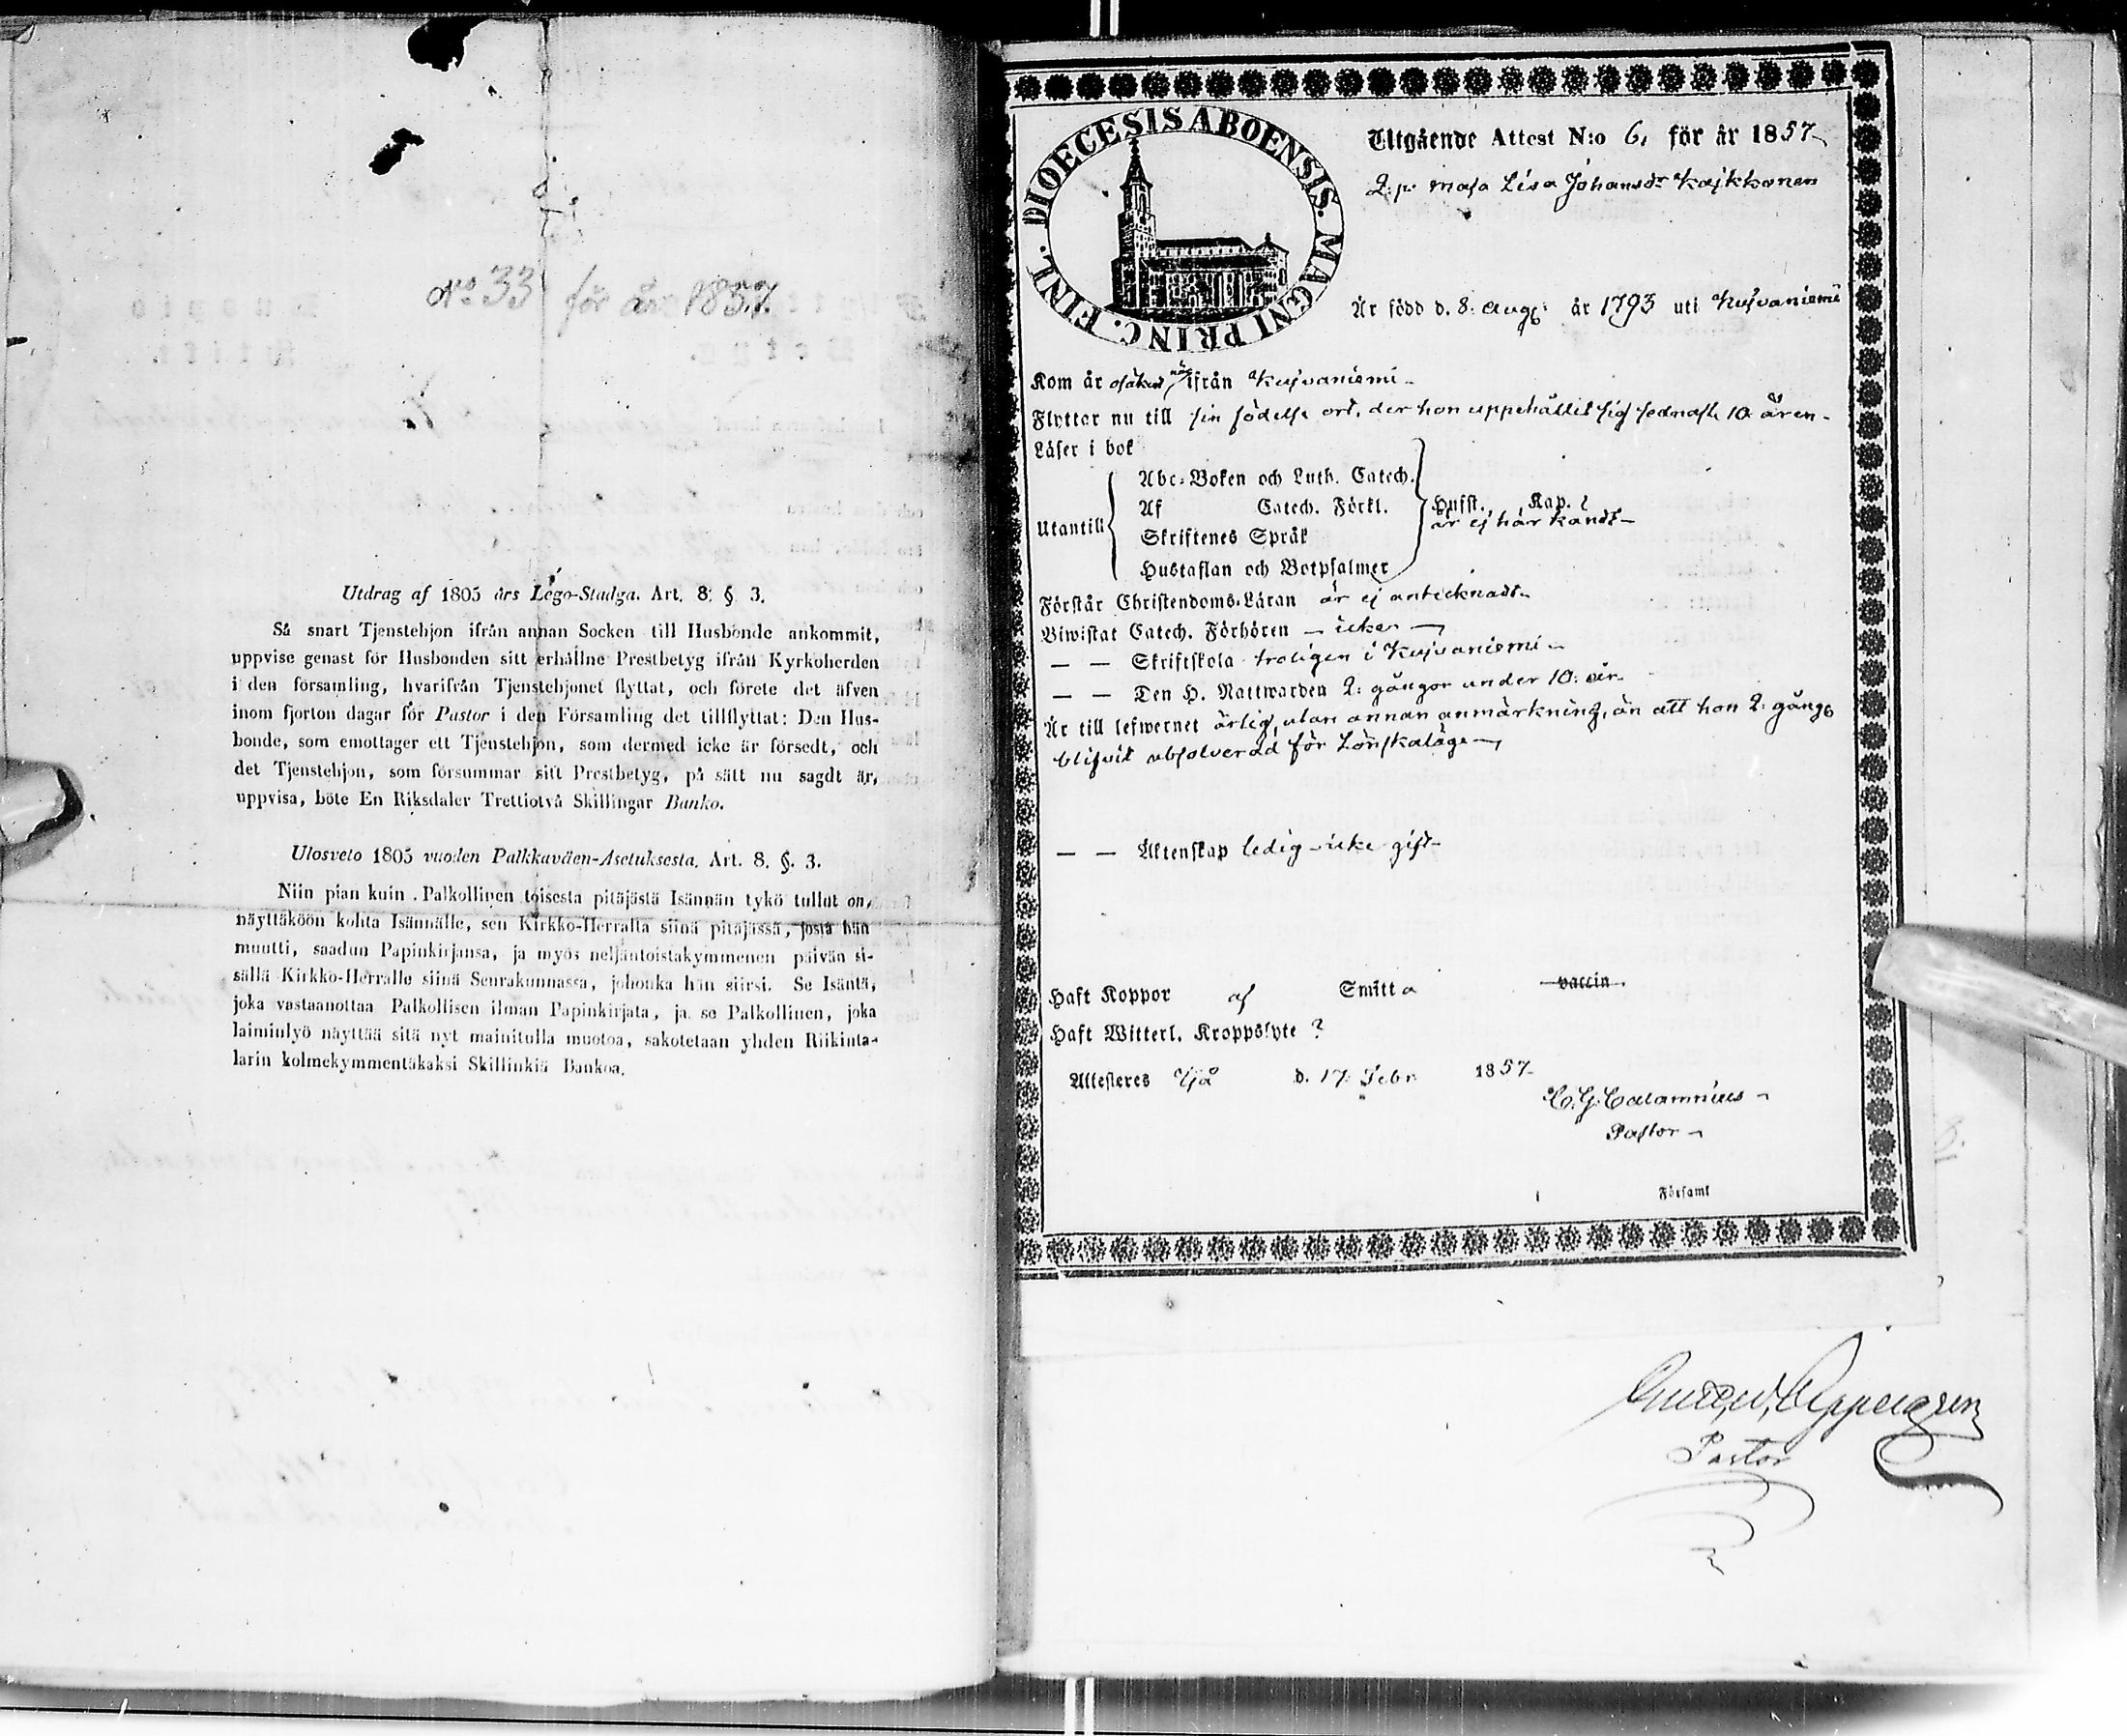 No 33 för år 1857.
Utdrag af 1805 års Lego-Stadga. Art. 8. §. 3.
Så snart Tjenstehjon ifrån annan Socken till Husbonde ankommit,
uppvise genast för Husbonden sitt erhållne Prestbetyg ifrån Kyrkoherden
i den församling, hvarifrån Tjenstehjonet flyttat, och förete det äfven
inom fjorton dagar för Pastor i den Församling det tillflyttat: Den Hus-
bonde, som emottager ett Tjenstehjon, som dermed icke är försedt, och
det Tjenstehjon, som försummar sitt Prestbetyg, på sätt nu sagdt är,
uppvisa, böte En Riksdaler Trettiotvå Skillingar Banko.
Ulosveto 1805 vuoden Palkkaväen-Asetuksesta. Art. 8. §. 3.
Niin pian kuin Palkollinen toisesta pitäjästä Isännän tykö tullut on,
näyttäköön kohta Isännälle, sen Kirkko-Herralta siinä pitäjässä, josta hän
muutti, saadun Papinkirjansa, ja myös neljäntoistakymmenen päivän si-
sällä Kirkko-Herralle siinä Seurakunnassa, johonka hän siirsi. Se Isäntä,
joka vastaanottaa Palkollisen ilman Papinkirjata, ja se Palkollinen, joka
laiminlyö näyttää sitä nyt mainitulla muotoa, sakotetaan yhden Riikinta-
larin kolmekymmentäkaksi Skillinkiä Bankoa.
DIOECESIS ABOENSIS. MAGNI PRINC. FINL.
Utgående Attest N:o 6, för år 1857
Q:p Maja Lisa Johansdr Kajkkonen
Är född d. 8. Aug: år 1793 uti Kujvaniemi
Kom år osäkert när ifrån Kujvaniemi
Flyttar nu till sin födelse ort, der hon uppehållit sig sednaste 10 åren
Läser i bok
Utantill
Abc-Boken och Luth. Catech.
Af Catech. Förkl.
Skriftenes Språk
Hustaflan och Botpsalmer
Husst. Kap.
är ej här kändt
Förstår Christendoms-Läran är ej antecknadt
Biwistat Catech. Förhören — icke —
— — Skriftskola troligen i Kujvaniemi
— — Den H. Nattwarden 2: gångor under 10: år
Är till lefwernet ärlig, utan annan anmärkning, än att hon 2: gångr
blifvit absolverad för Lönskaläge
— — Äktenskap ledig — icke gift
Haft Koppor af Smitta vaccin.
Haft Witterl. Kroppslyte ?
Attesteres Ijå d. 17. Febr. 1857
C. G. Calamnius
Pastor
Församl
Pastor